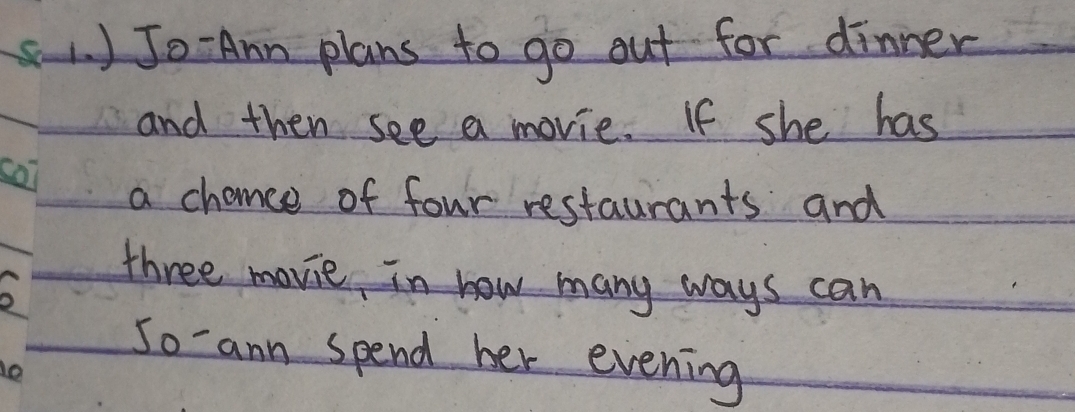 1.) Jo-Ann plans to go out for dinner
and then see a movie. If she has
a chance of four restaurants and
three movie, in how many ways can
Jo-ann spend her evening